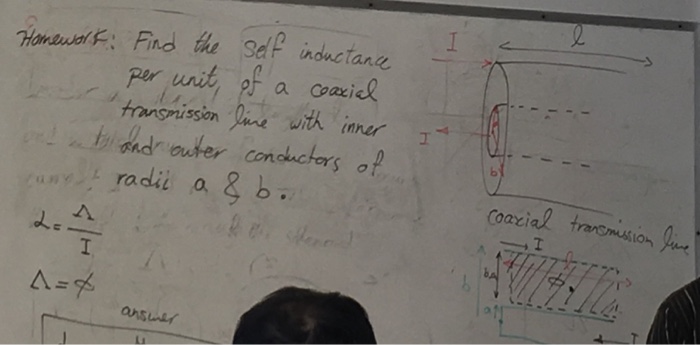 Homework: Find the self inductance
per unit, of a coaxial
transmission line with inner
and outer conductors of
radii a & b.
L = Λ / I
Λ = ϕ
answer
I
l
I
b
coaxial transmission line
I
ϕ
b
a
I